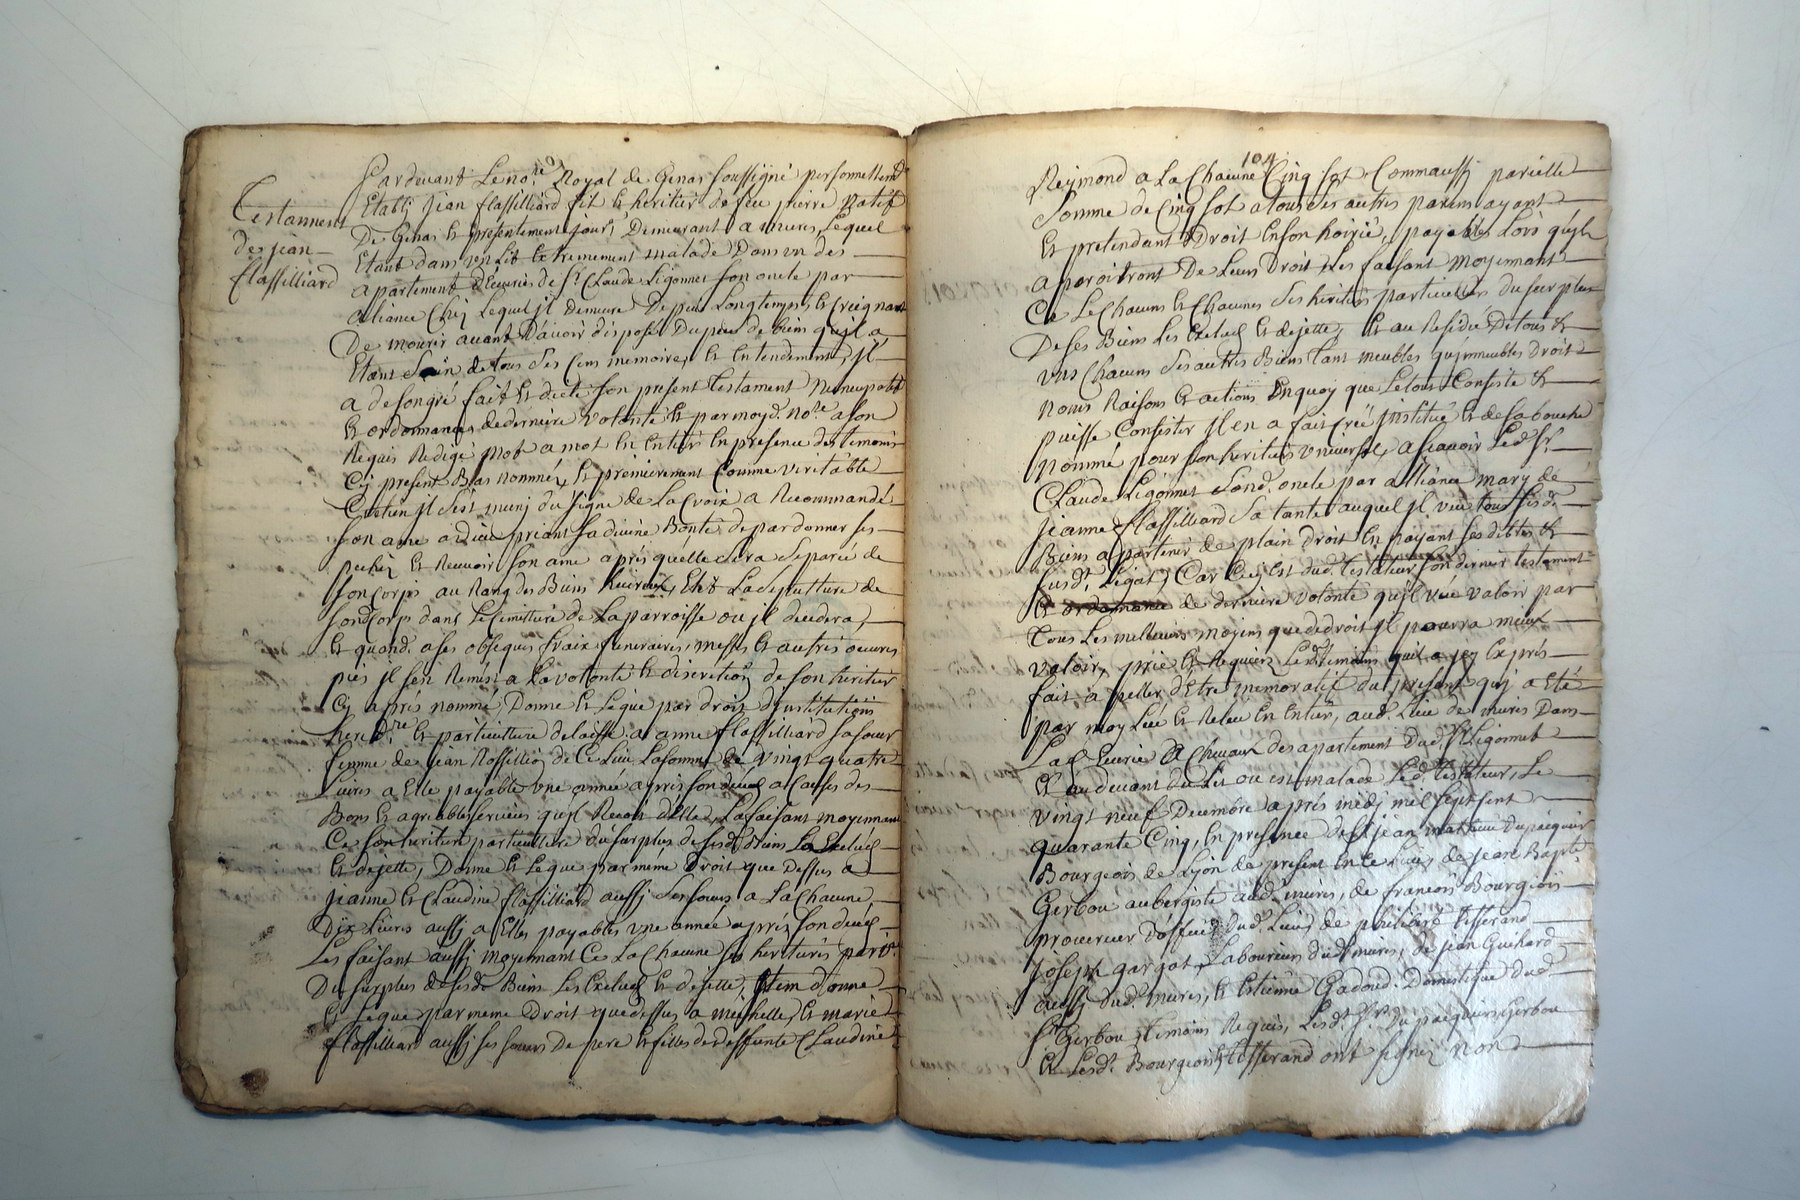 Testamment
de jean
flassilliard
Par devant Le no.re Royal de Genas soussigné personnellemt
Etably jean flassilliard fil et heritier de feu pierre natif
De Genas et presentement jour demeurant a mures, Lequel
Etant dans un Lit extremement malade Dans un des
apartement d'Ecuries de Sr Claude Ligonnet son oncle par
aliance Chez Lequel jl demeure Depuis Longtemps, et Creignant
De mourir avant D'avoir disposé Du peu de biens qu'jl a
Etant Sain de tous Ses Cens memoire, et Entendement, jl
a de son gré fait et dicté son present testament Nuncupatif
et ordonnance de derniere volonté et par moyd. no.re a son
Requis Redigé mot a mot En Entier En presence des temoins
Cy present Bas nommés, et premierement Comme veritable
Cretien jl s'est muni du signe de La Croix a Recommandé
son ame a dieu priant sa divine Bonté de pardonner ses
pechez et Recevoir son ame aprés quelle Sera Separée de
son corps au Rang des Biens heureux, Elit La Sepulture de
son Corp dans Le Cimittiere de La parroisse ou jl decedera,
et quand. a ses obseques fraix funeraires, messes et autres oeuvres
pies jl s'en Remis a La volonté et discretion de son heritier
Cy aprés nommé, Donne et Legue par droit d'jnstitutions
hered.re et particulliere delaisse a anne flassilliard sa soeur
femme de jean Rossillio de Ce Lieu La somme de vingt quatre
Livres a Elle payable une année apris son décéd a Causes des
Bons et agreables services qu'jl Recoit d'elle, La faisant moyennant
Ce son heritiere particulliere du surplus de sesd. Biens La Exclud
et dejette, Donne et Legue par meme Droit que Dessus a
jeanne et Claudine flassilliard aussy Ses soeurs a La Chacune
Dix Livres aussy a Elles payables une année apriz son deced
Les faisant aussy moyennant Ce La Chacune ses heritieres part.res
Du surplus de Sesd. Biens Les Exclud et dejette, jtem donne
et Legue par meme Droit que dessus a michelle, et marie
flassilliard aussy ses soeurs De pere et filles de deffunte Claudine
104
Reymond a La Chacune Cinq sol Comm'aussy pareille
Somme de Cinq sol a tous Ses autres parens ayant
Et pretendant Droit En son hoirie, payables Lors qu'jls
aparoitront De Leurs Droit Les faisant moyennant
Ce Le Chacuns et Chacunes Ses heritiers particulliers du surplus
De Ses Biens Les Exclud et dejette, Et au Residu De tous et
uns Chacuns Ses autres Biens tant meubles qu'immeubles droit
noms Raisons et actions En quoy que Le tout Consiste et
puisse Consister jl en a fait Créé jnstitué et de Sa bouche
nommé pour Son heritier universel, a scavoir Led. Sr
Claude Ligonnet Sond. oncle par alliance mary de
jeanne flassilliard Sa tante auquel jl veut tous Sesd.
Biens apartenir de plain Droit En payant Ses debtes et
susd. Legat, Car Cecy Est dud. testateur son dernier testament
et ordonnance de derniere volonté qu'jl veut valoir par
tous Les meilleurs moyens que de droit jl pourra mieux
valoir, prie et Requiers Lesd. temoins qu'il a jcy Exprés
fait apeller d'Etre memoratif du present qui a Eté
par moy Lue et Releu En Entier, aud. Lieu de mures Dans
La Ecurie a Chevaux des apartement dud. Sr Ligonnet
Et au devant du Lit ou est malade Led. testateur, Le
vingt neuf Decembre aprés midy mil Sept sent
quarante Cinq, En presence de Sr jean mathieu Dupacquier
Bourgeois de Lyon de present En Ce Lieu, de jean Bapt.
Gerbou aubergiste aud. mures, de francois Bourgeois
procureur d'office dud. Lieu, de philibert tisserand
joseph gargot Laboureurs dud. mures, de jean Guihard
aussy dud. mures, et Estienne Gadoud. Domestique dud.
Sr Gerbou temoins Requis, Lesd. Srs. Du pacquier, Gerbou
et Lesd. Bourgeois, tisserand ont signéz non